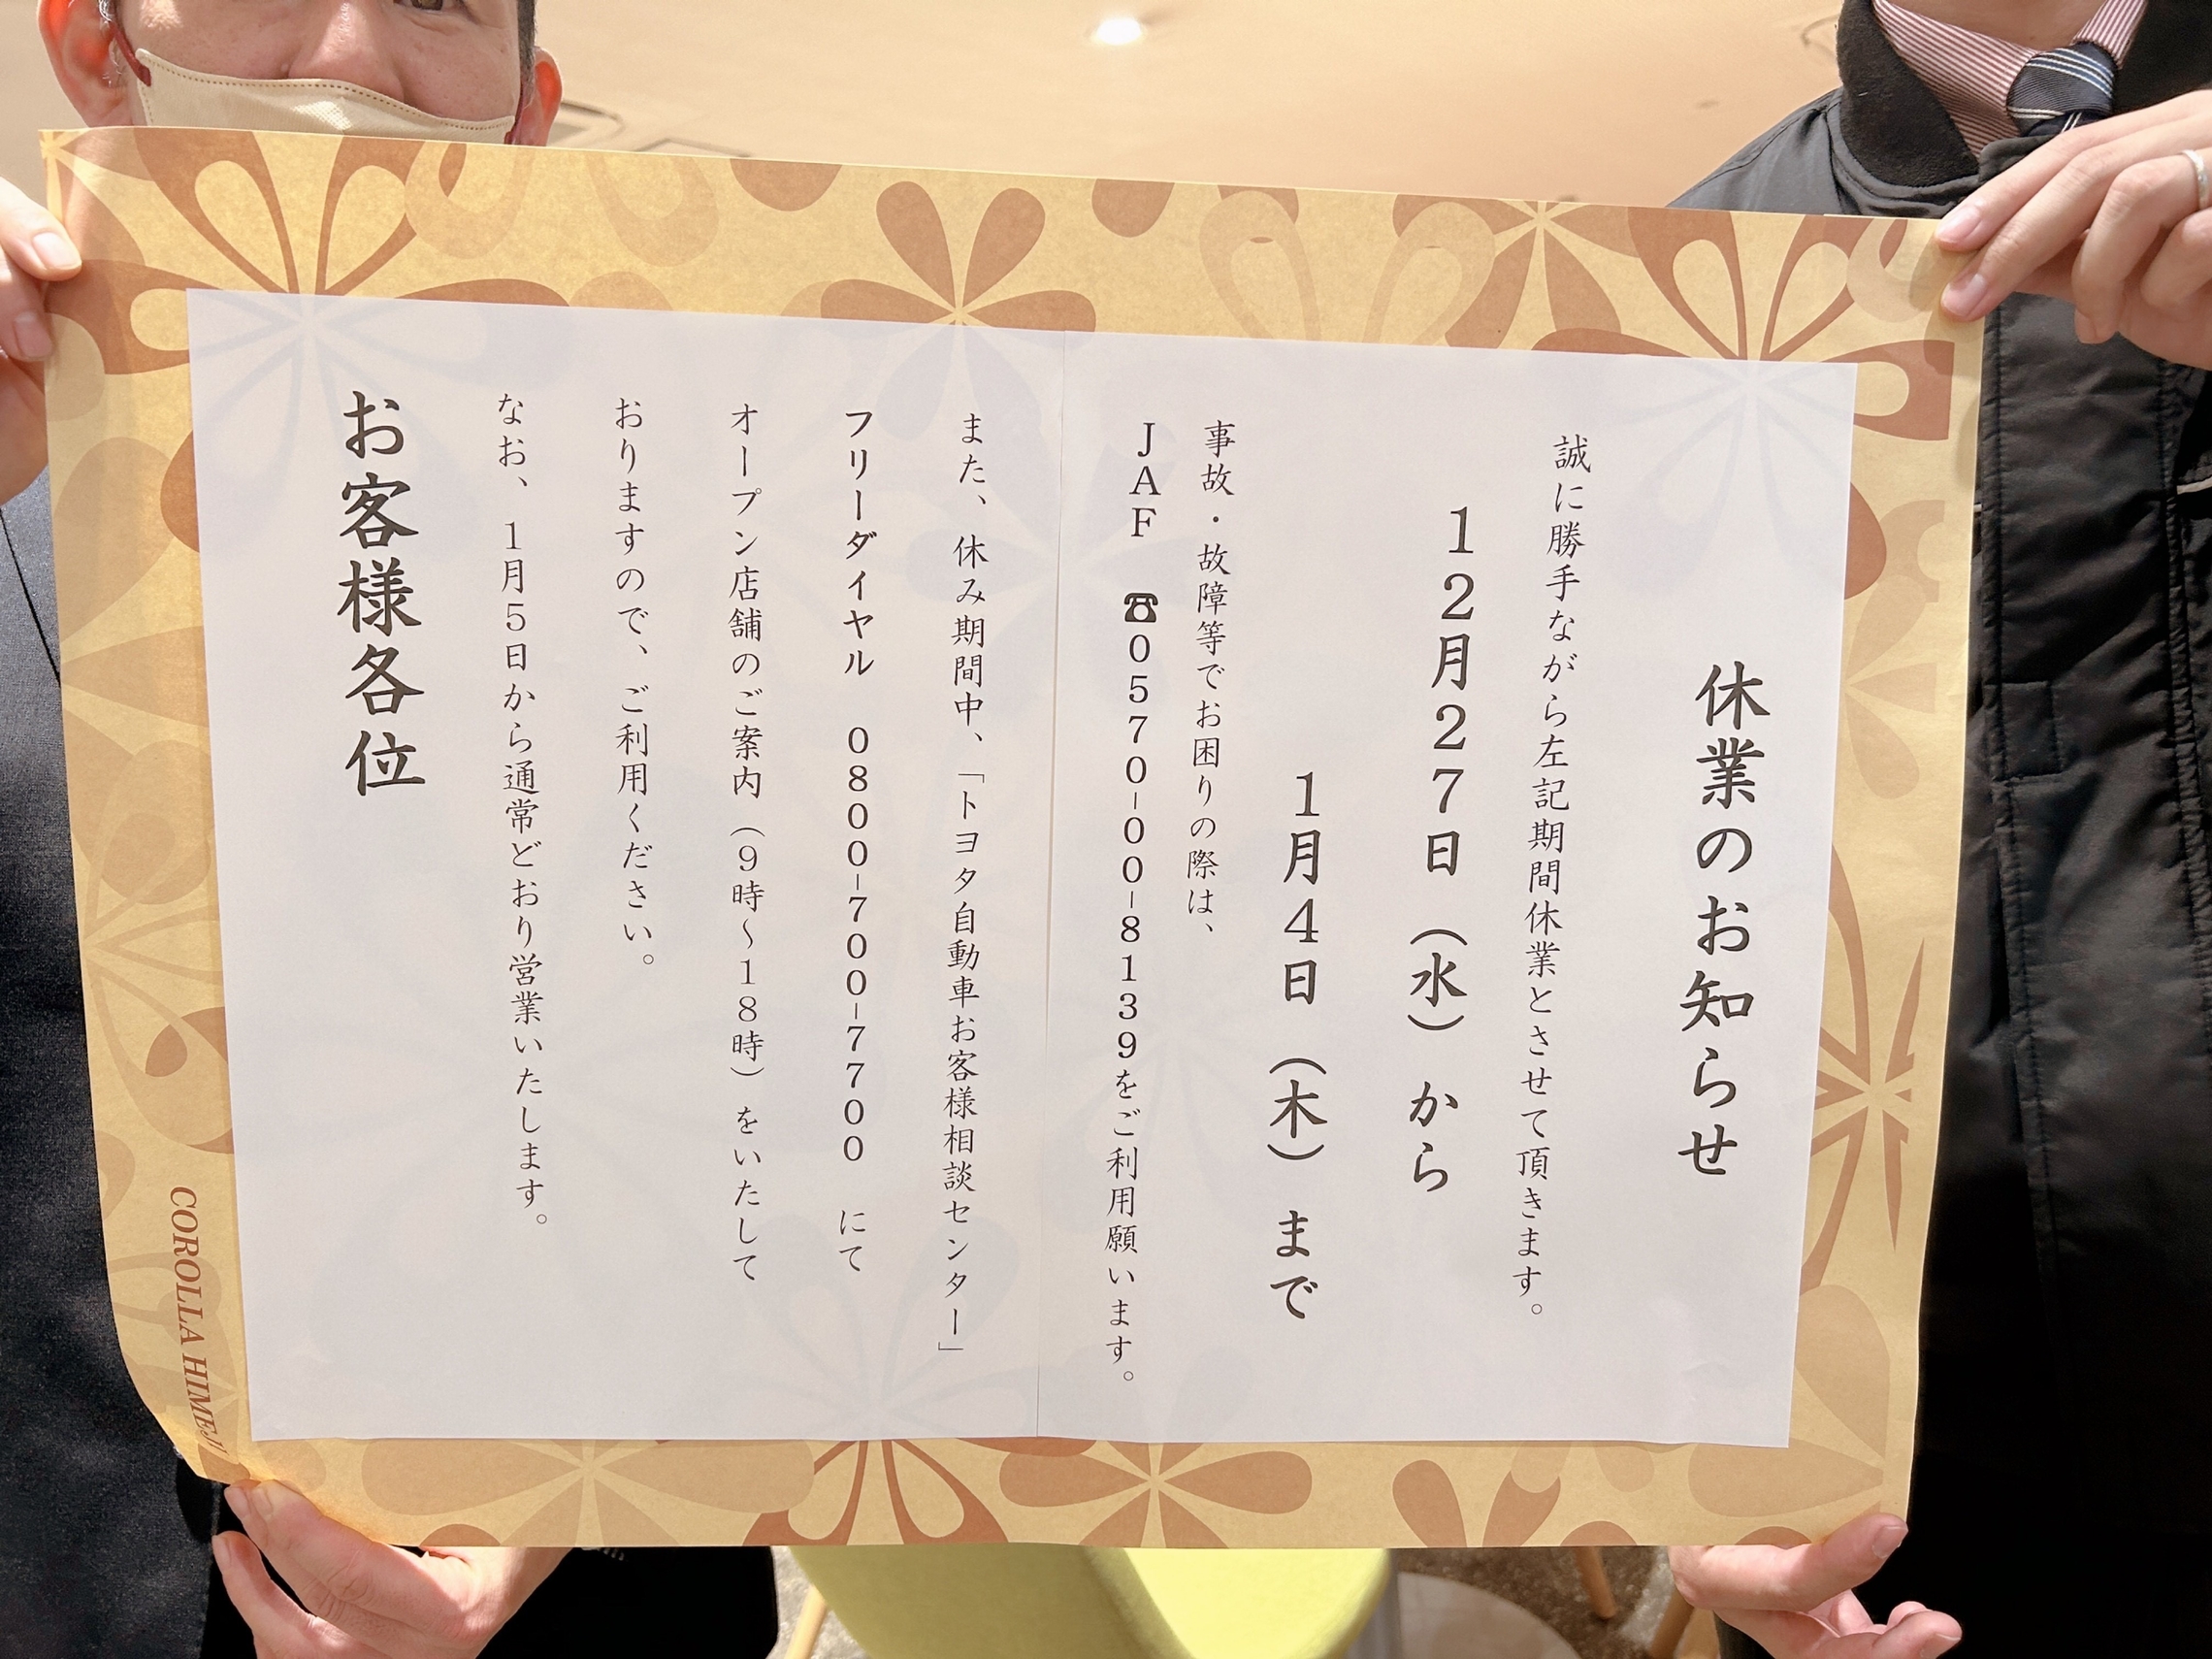 休業のお知らせ
誠に勝手ながら左記期間休業とさせて頂きます。
12月27日（水）から
1月4日（木）まで
事故・故障等でお困りの際は、
JAF ☎0570-00-8139をご利用願います。
また、休み期間中、「トヨタ自動車お客様相談センター」
フリーダイヤル 0800-700-7700 にて
オープン店舗のご案内（9時～18時）をいたして
おりますので、ご利用ください。
なお、1月5日から通常どおり営業いたします。
お客様各位
COROLLA HIMEJI